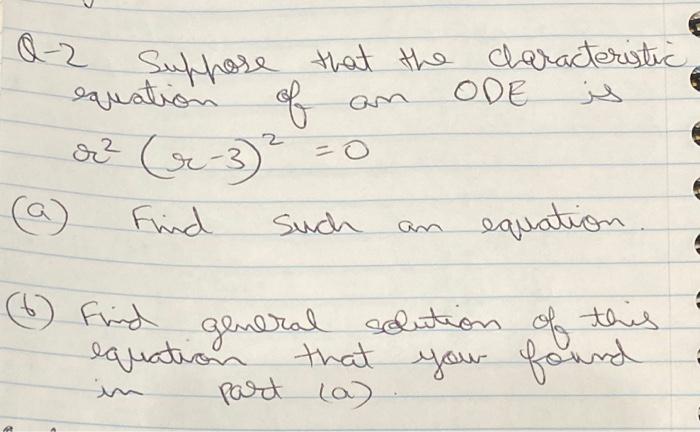 Q-2 Suppose that the characteristic
equation of an ODE is
r² (r-3)² = 0
(a) Find such an equation.
(b) Find general solution of this
equation that you found
in part (a).